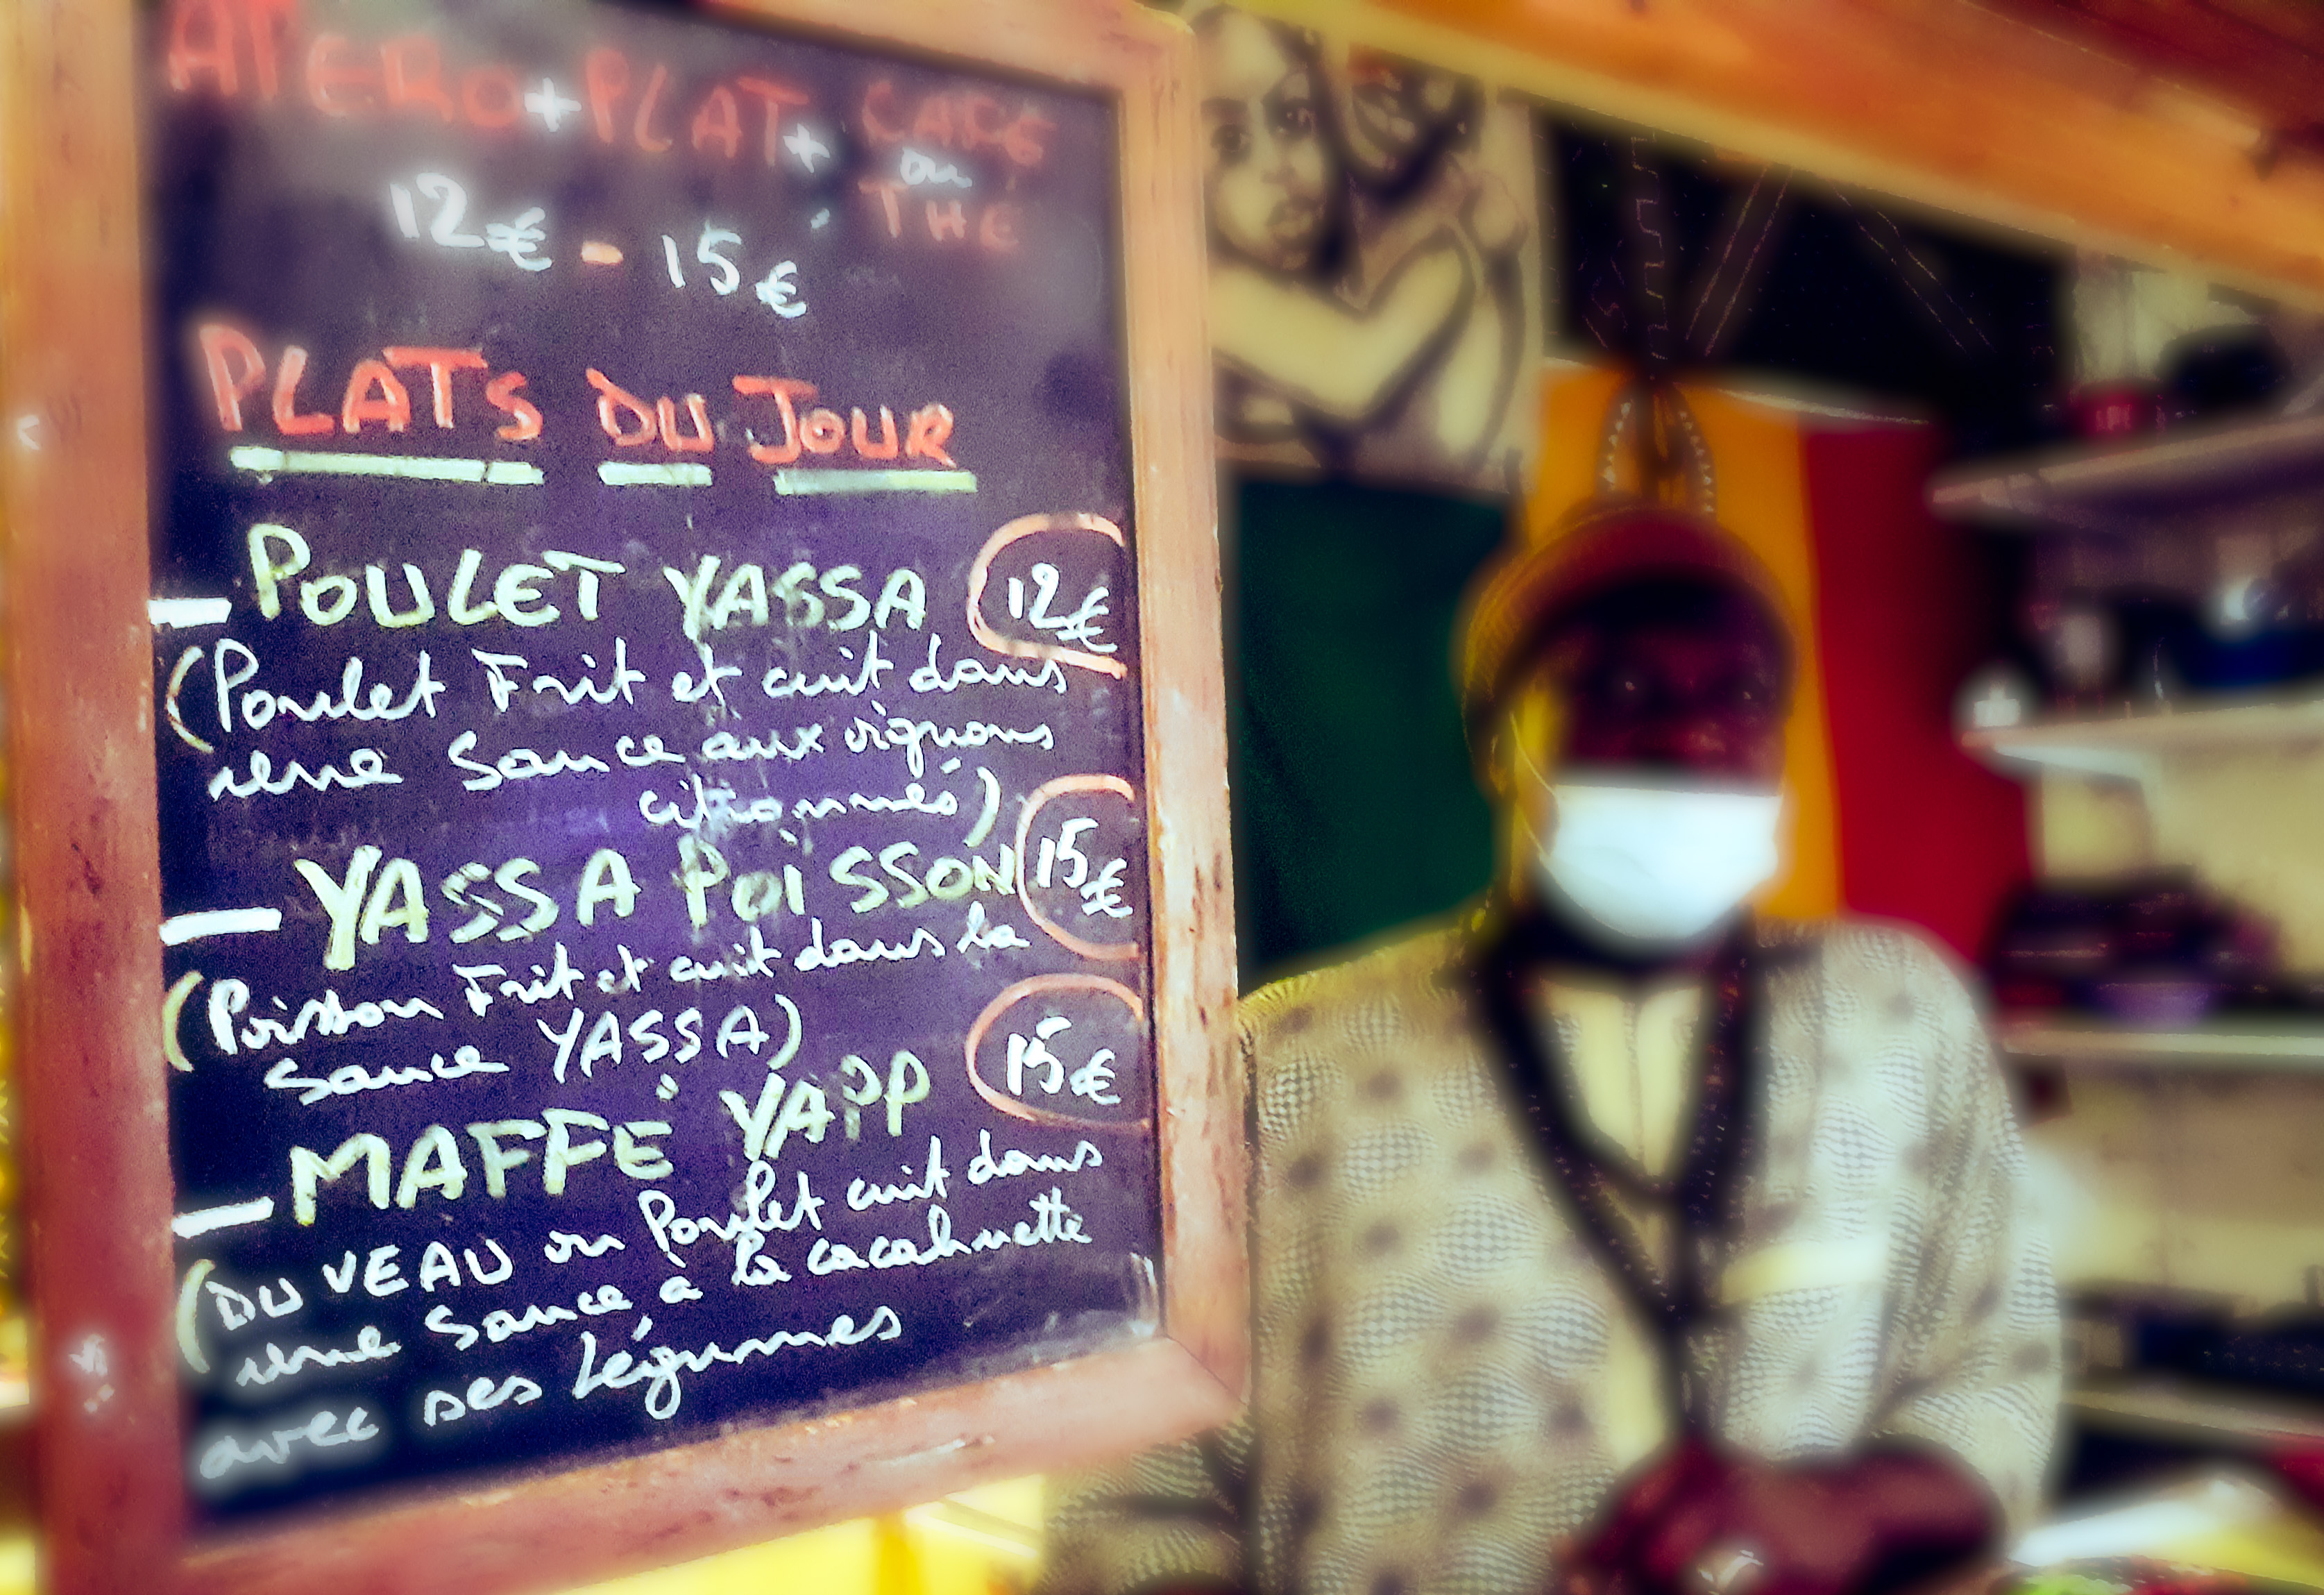 APERO + PLAT + CAFE
ou
THE
12€ - 15€
PLATS DU JOUR
- POULET YASSA 12€
(Poulet Frit et cuit dans
une Sauce aux oignons
citronnés)
- YASSA POISSON 15€
(Poisson Frit et cuit dans la
sauce YASSA)
- MAFFE YAPP 15€
(DU VEAU ou Poulet cuit dans
une Sauce à la cacahuette
avec ses légumes